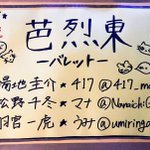 芭烈東
ーバレットー
場地圭介 * 417 @417_m
松野千冬 * マナ @Namaichi
羽宮一虎 * うみ @umiringo